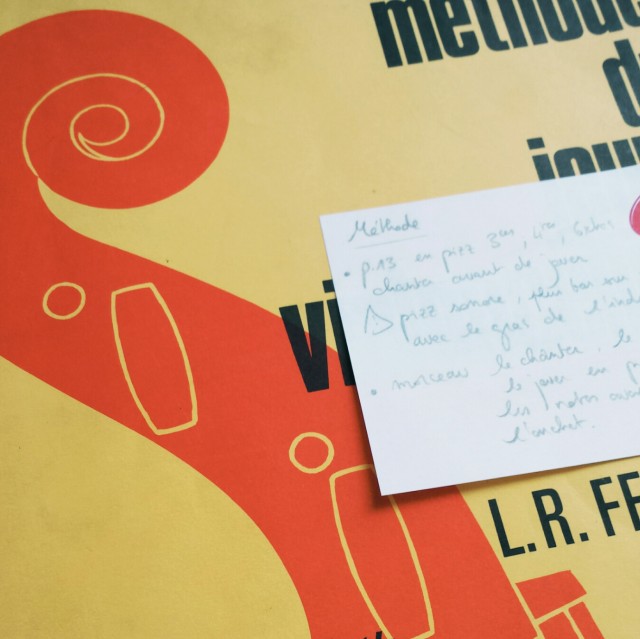 méthode
du
jou
Méthode
• p.13 en pizz 3em, 4em,
chanter avant de jouer
⚠ pizz sonore, plus bas sur
avec le gras de l'ind
vi
• morceau le chanter. le
le jouer en p
les notes avan
l'archet.
L.R. FE